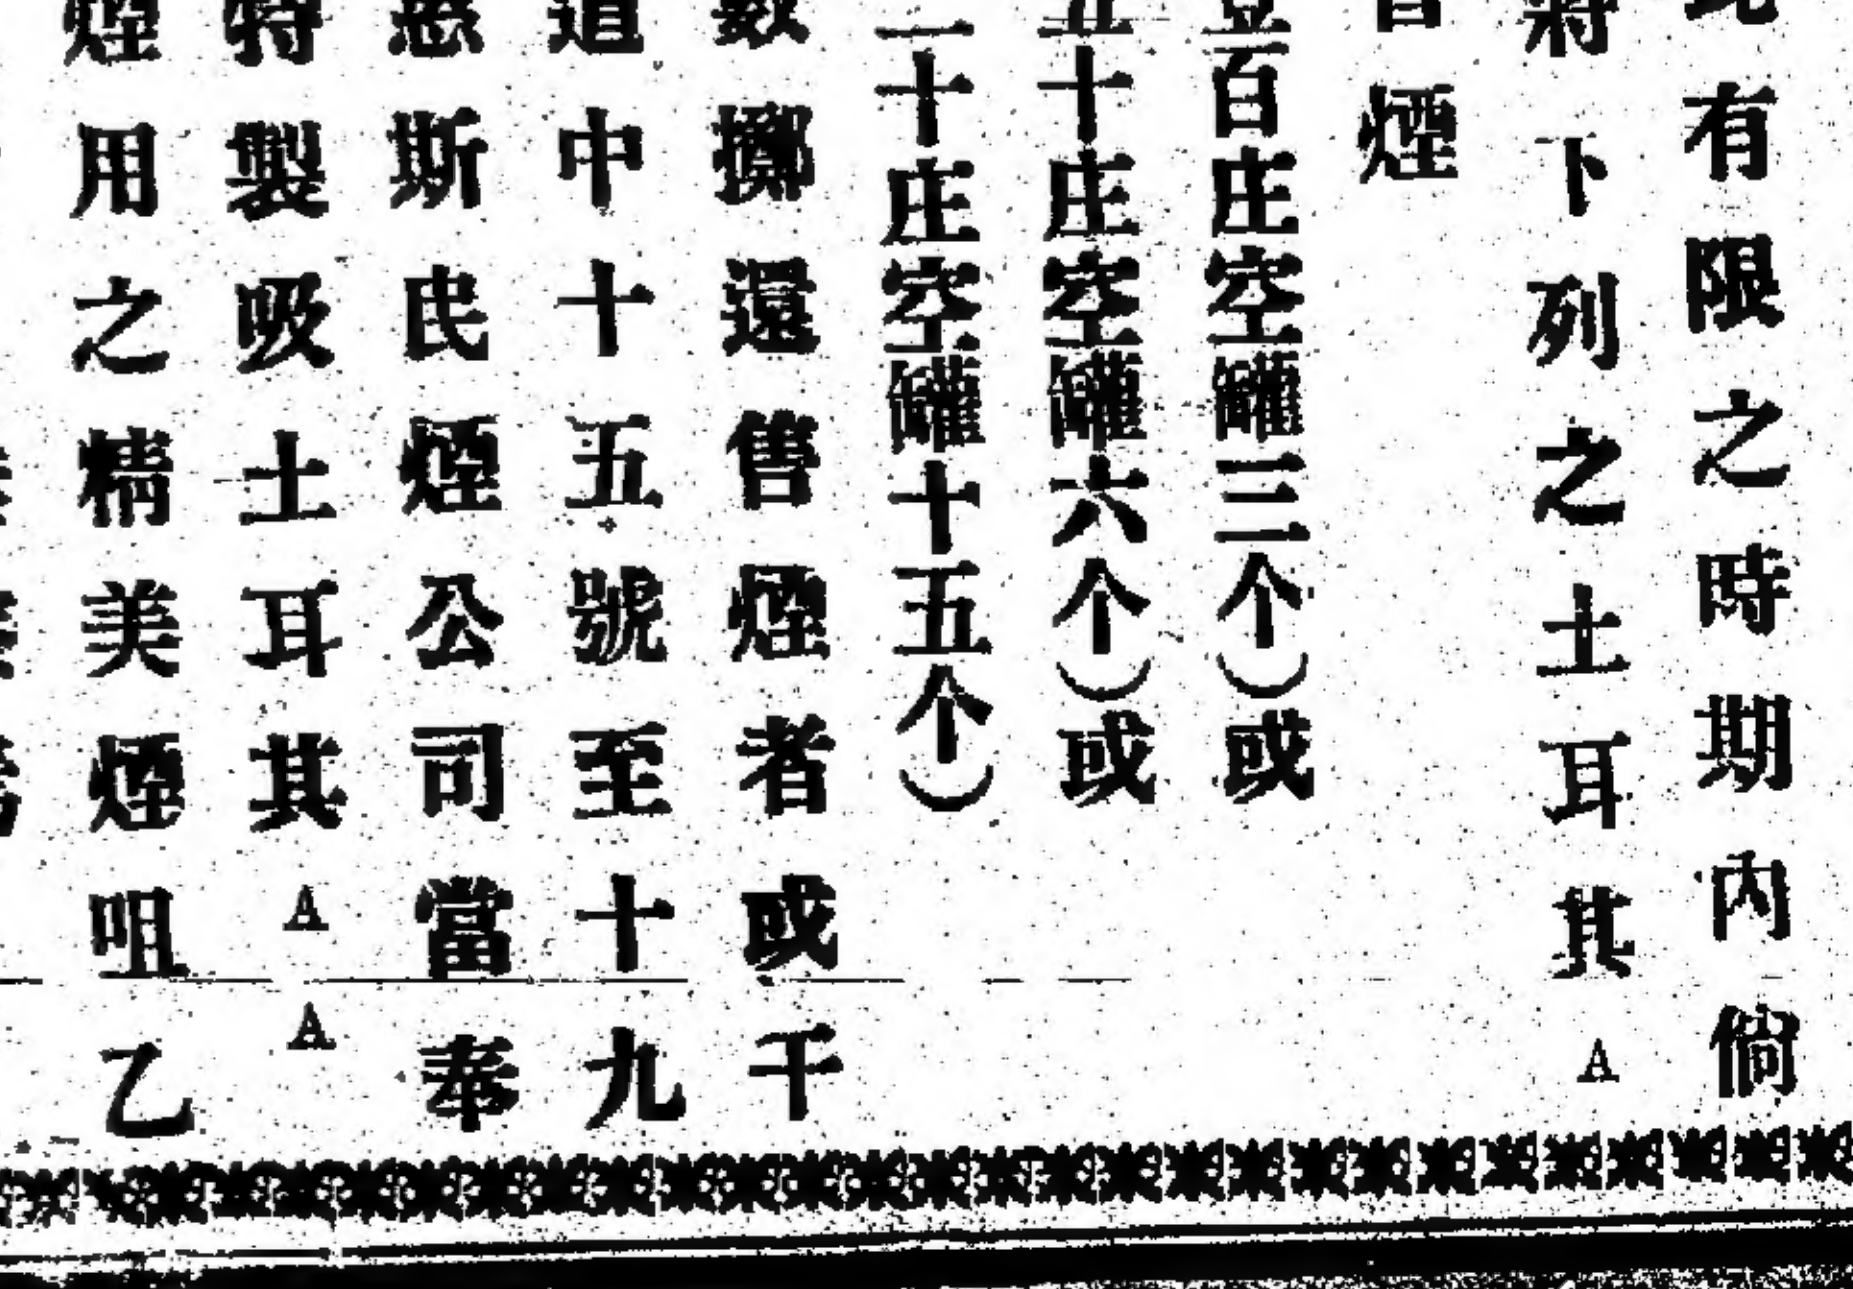 有限之時期內倘
將下列之土耳其A
煙
百庄空罐三个)或
五十庄空罐六个)或
二十庄空罐十五个)
數擲還售煙者或干
道中十五號至十九
惑斯民煙公司當奉
特製吸土耳其AA
煙用之精美煙咀乙